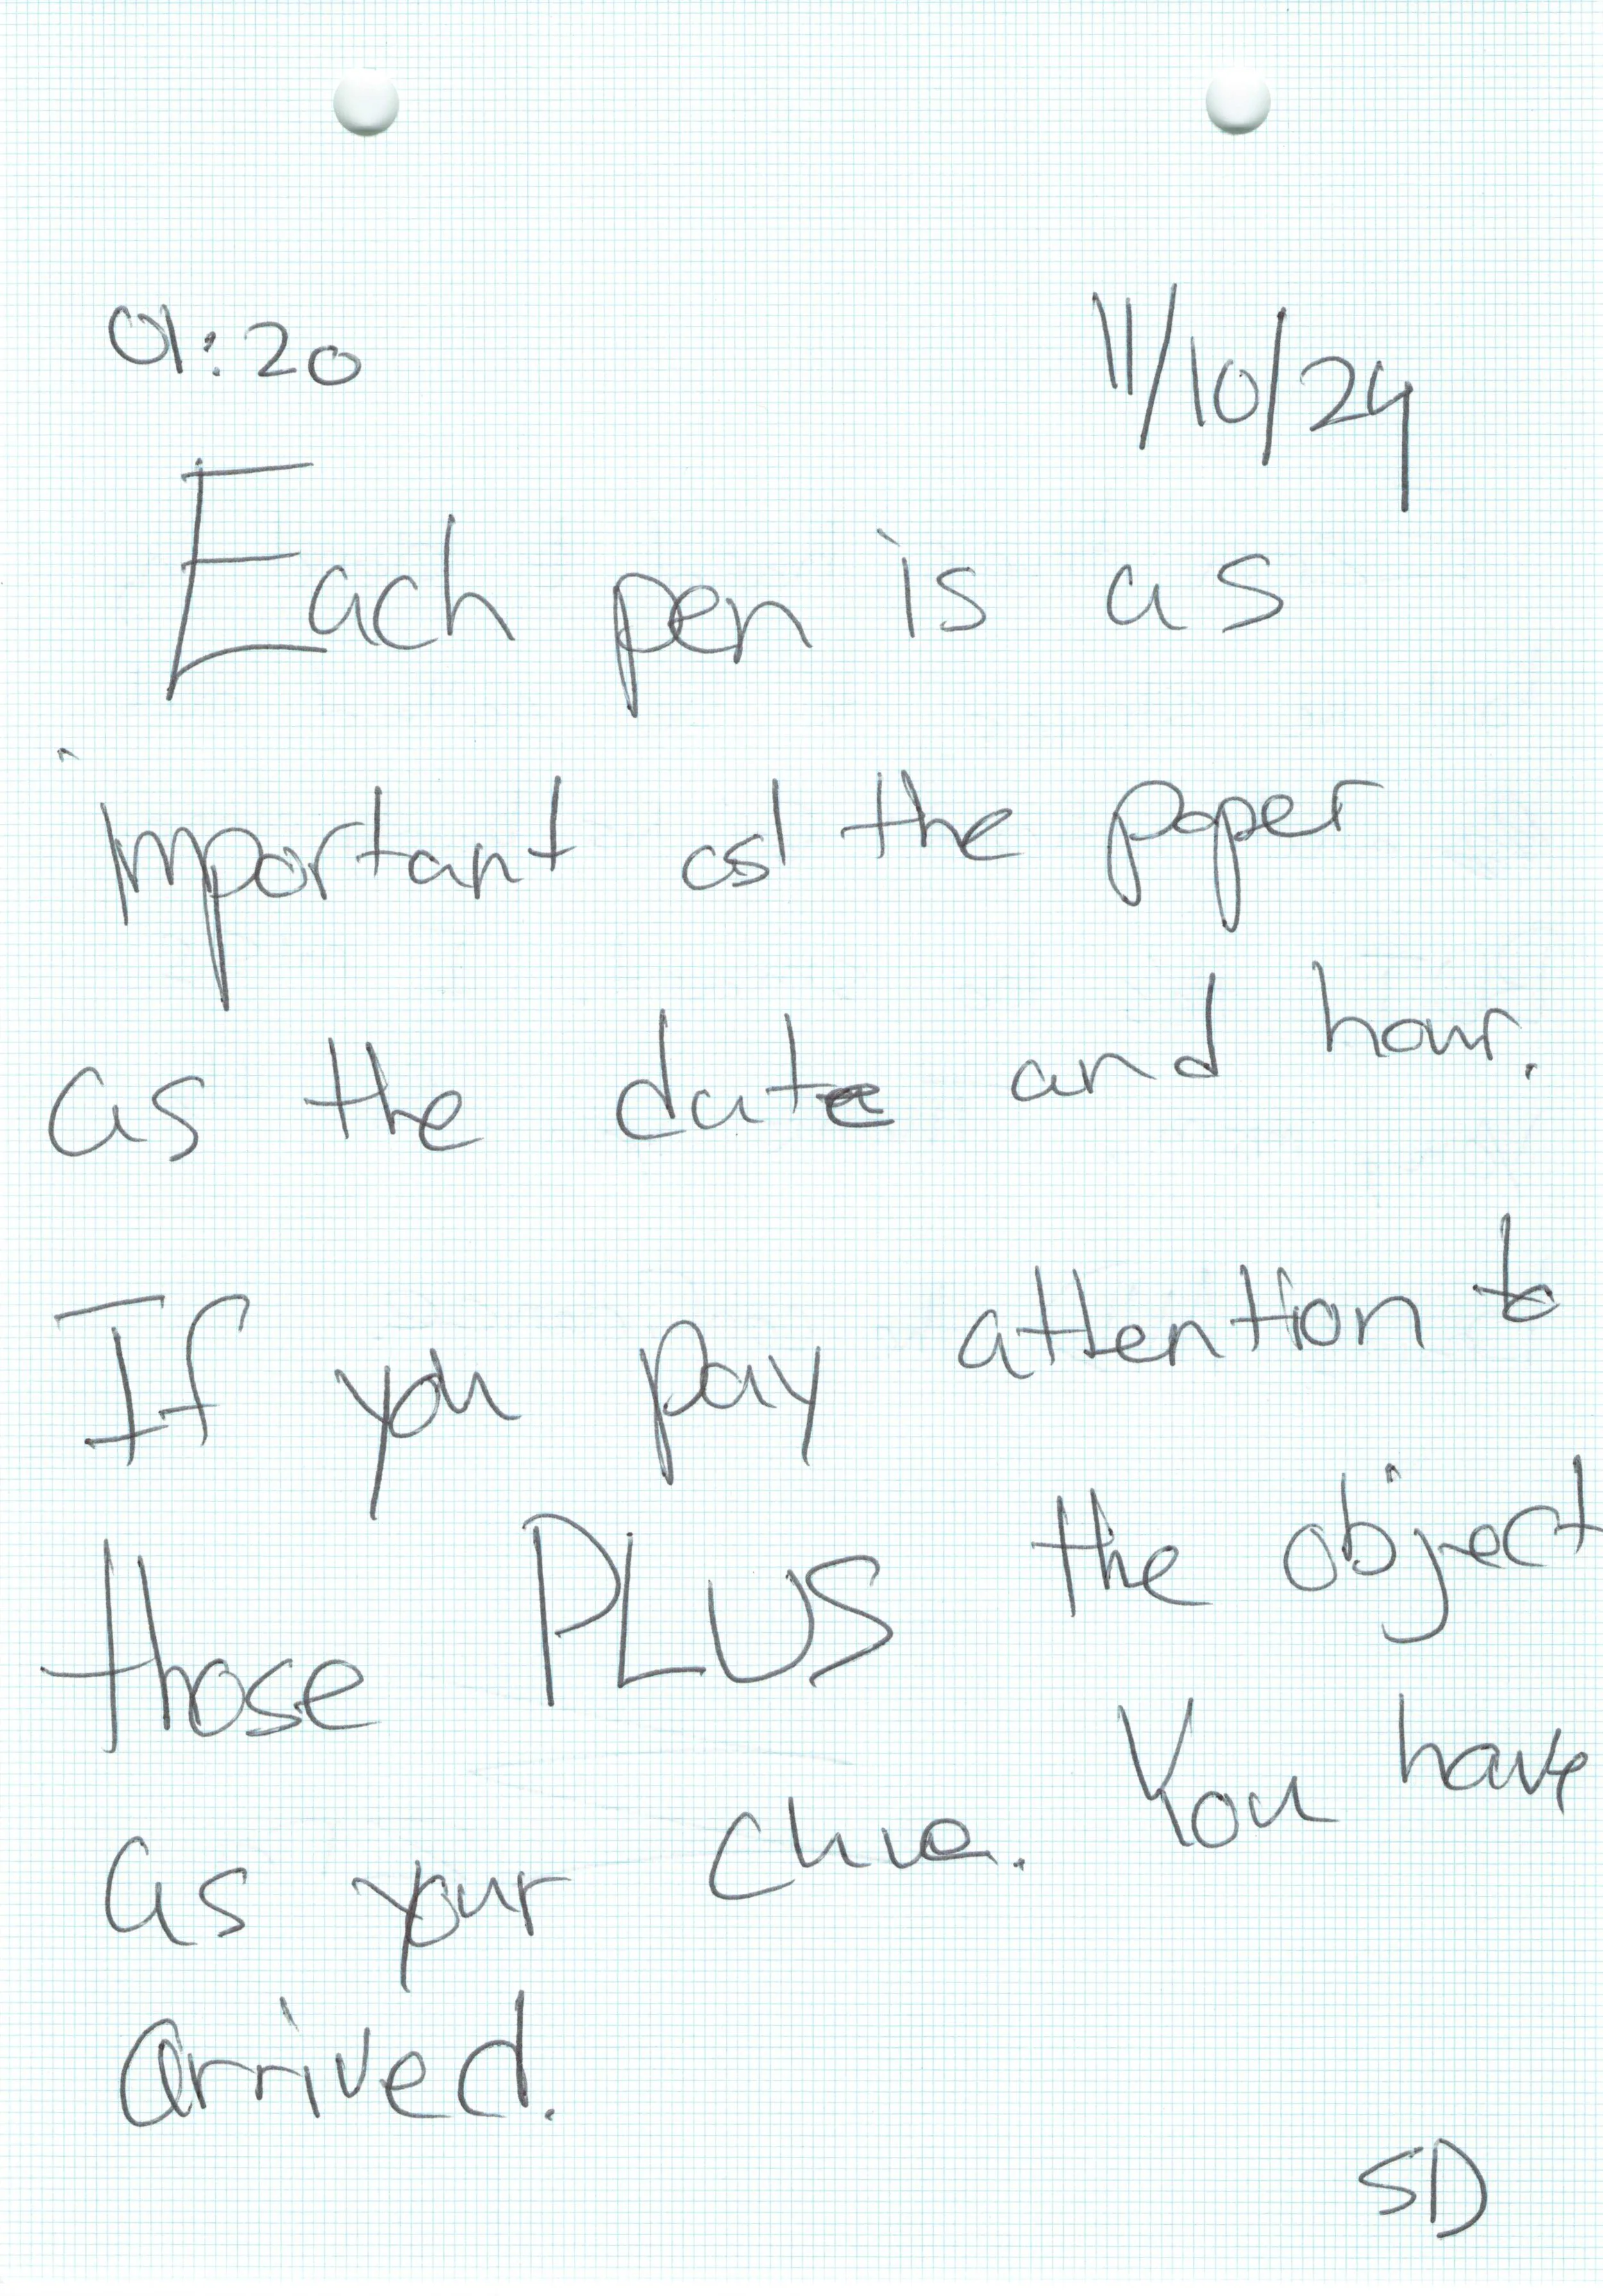 01:20 11/10/24
Each pen is as
important as the paper
as the date and hour.
If you pay attention to
those PLUS the object
as your clue. You have
arrived.
SD